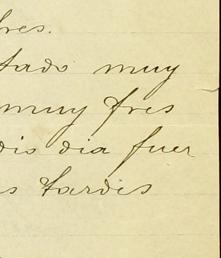 res.
tado muy
muy fres
dio dia fuer
s tardes